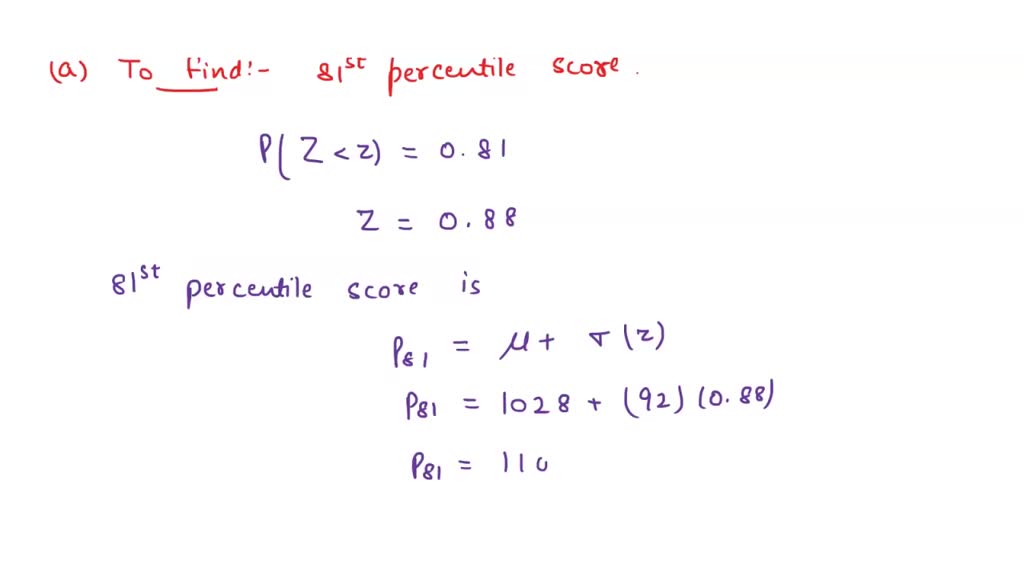 (a) To Find:- 81st percentile score.
P( Z < z) = 0.81
Z = 0.88
81st percentile score is
P81 = μ + σ (z)
P81 = 1028 + (92) (0.88)
P81 = 110